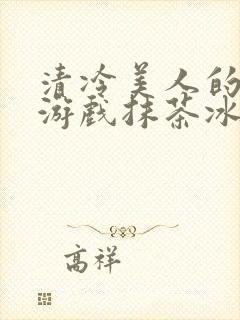 清冷美人的
游戏抹茶冰
高祥